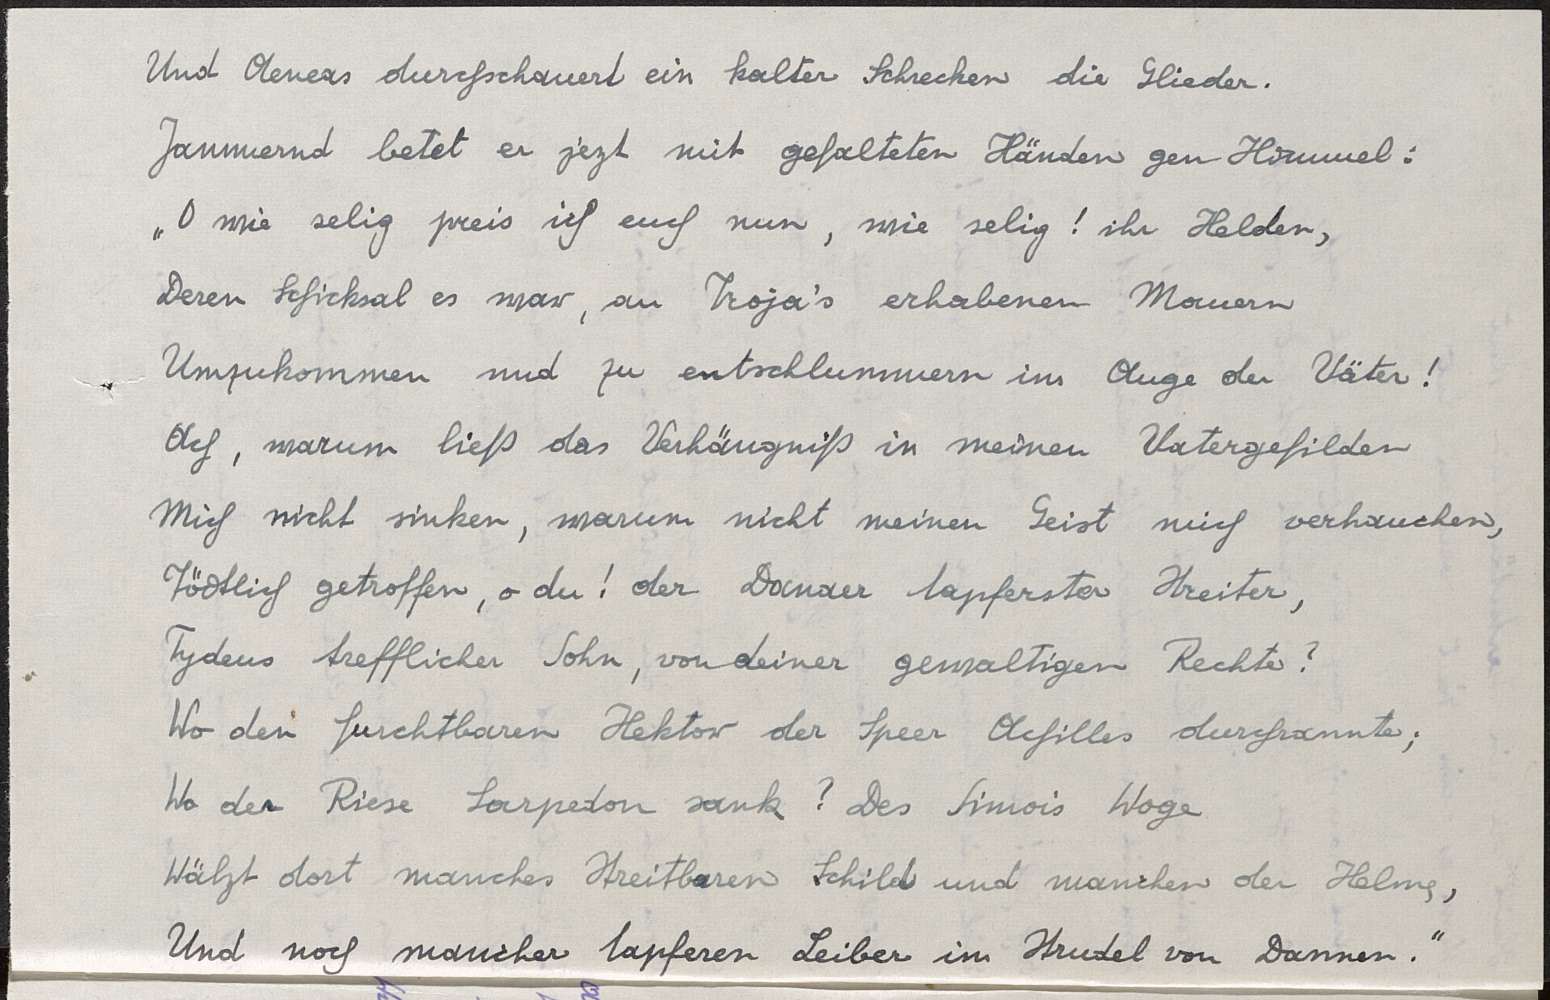 Und Aeneas durchschauert ein kalter Schrecken die Glieder.
Jammernd betet er jezt mit gefalteten Händen gen Himmel:
„O wie selig preis ich euch nun, wie selig! ihr Helden,
Deren Schicksal es war, an Troja's erhabenen Mauern
Umzukommen und zu entschlummern im Auge der Väter!
Ach, warum ließ das Verhängniß in meinen Vatergefilden
Mich nicht sinken, warum nicht meinen Geist mich verhauchen,
Tödtlich getroffen, o du! der Danaer tapferster Streiter,
Tydeus trefflicher Sohn, von deiner gewaltigen Rechte?
Wo den furchtbaren Hektor der Speer Achilles durchrannte;
Wo der Riese Sarpedon sank? Des Simois Woge
Wälzt dort manches Streitbaren Schild und manchen der Helme,
Und noch mancher tapferen Leiber im Strudel von Dannen."